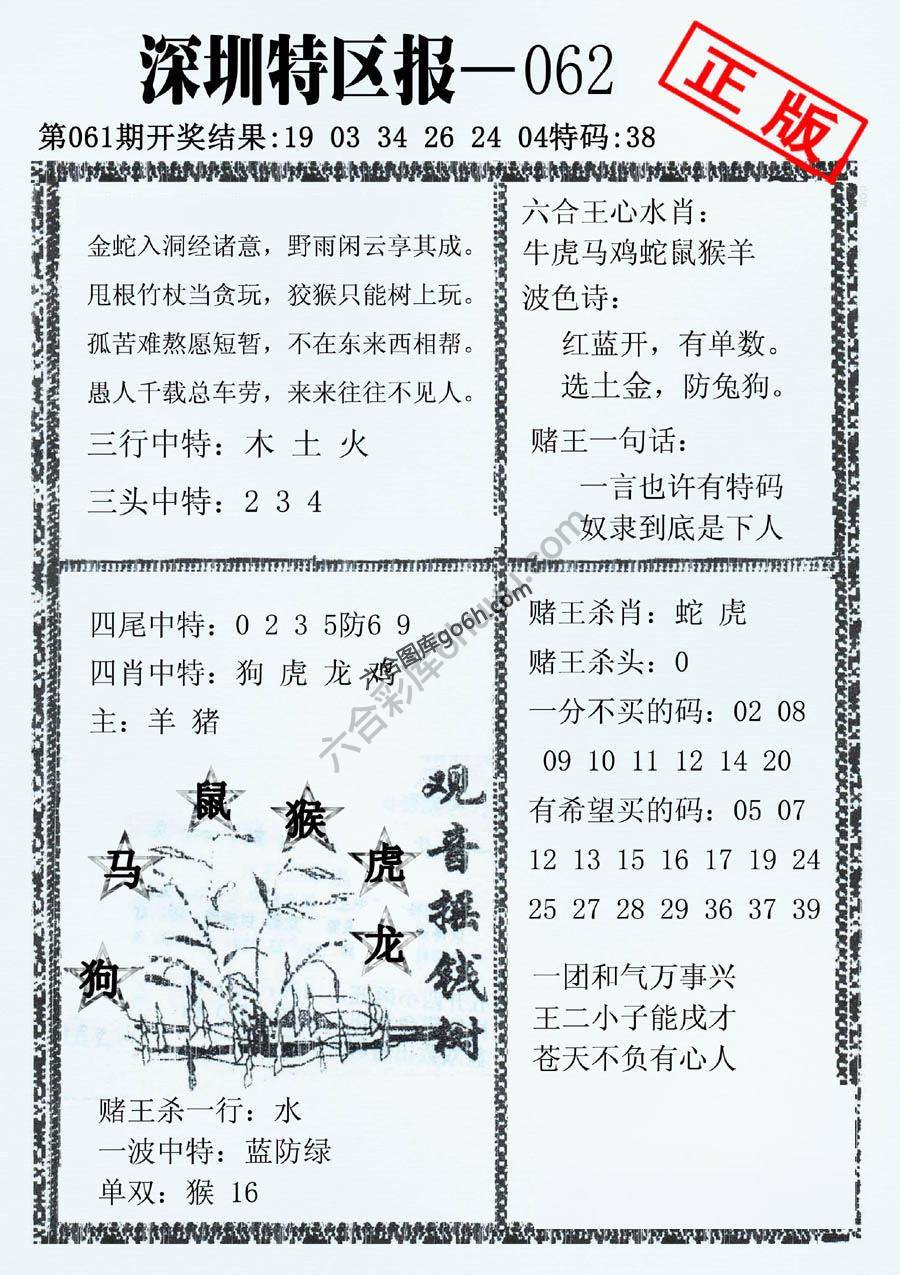 深圳特区报—062
正版
第061期开奖结果:19 03 34 26 24 04特码:38
金蛇入洞经诸意，野雨闲云享其成。
甩根竹杖当贪玩，狡猴只能树上玩。
孤苦难熬愿短暂，不在东来西相帮。
愚人千载总车劳，来来往往不见人。
三行中特：木 土 火
三头中特：2 3 4
六合王心水肖：
牛虎马鸡蛇鼠猴羊
波色诗：
红蓝开，有单数。
选土金，防兔狗。
赌王一句话：
一言也许有特码
奴隶到底是下人
四尾中特：0 2 3 5防6 9
四肖中特：狗 虎 龙 鸡
主：羊 猪
鼠
猴
马
虎
龙
狗
观音摇钱树
赌王杀一行：水
一波中特：蓝防绿
单双：猴 16
赌王杀肖：蛇 虎
赌王杀头：0
一分不买的码：02 08
09 10 11 12 14 20
有希望买的码：05 07
12 13 15 16 17 19 24
25 27 28 29 36 37 39
一团和气万事兴
王二小子能戌才
苍天不负有心人
六合图库go6h.com